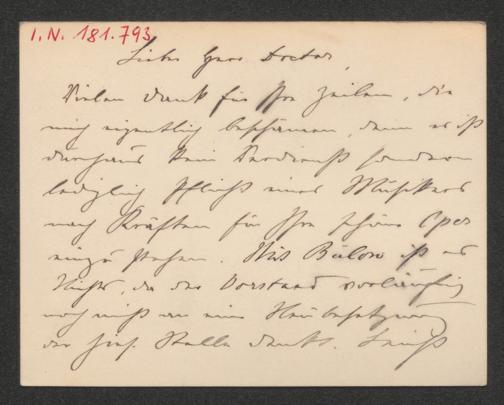 I.N. 181.793
Lieber Herr Doctor,
Vielen Dank für Ihre Zeilen, die
mich eigentlich beschämen, denn es ist
durchaus kein Verdienst sondern
lediglich Pflicht eines Musikers
nach Kräften für Ihre schöne Oper
einzustehen. Mit Bülow ist es
Nichts, da der Vorstand vorläufig
noch nicht an eine Neubesetzung
der Stelle denkt.